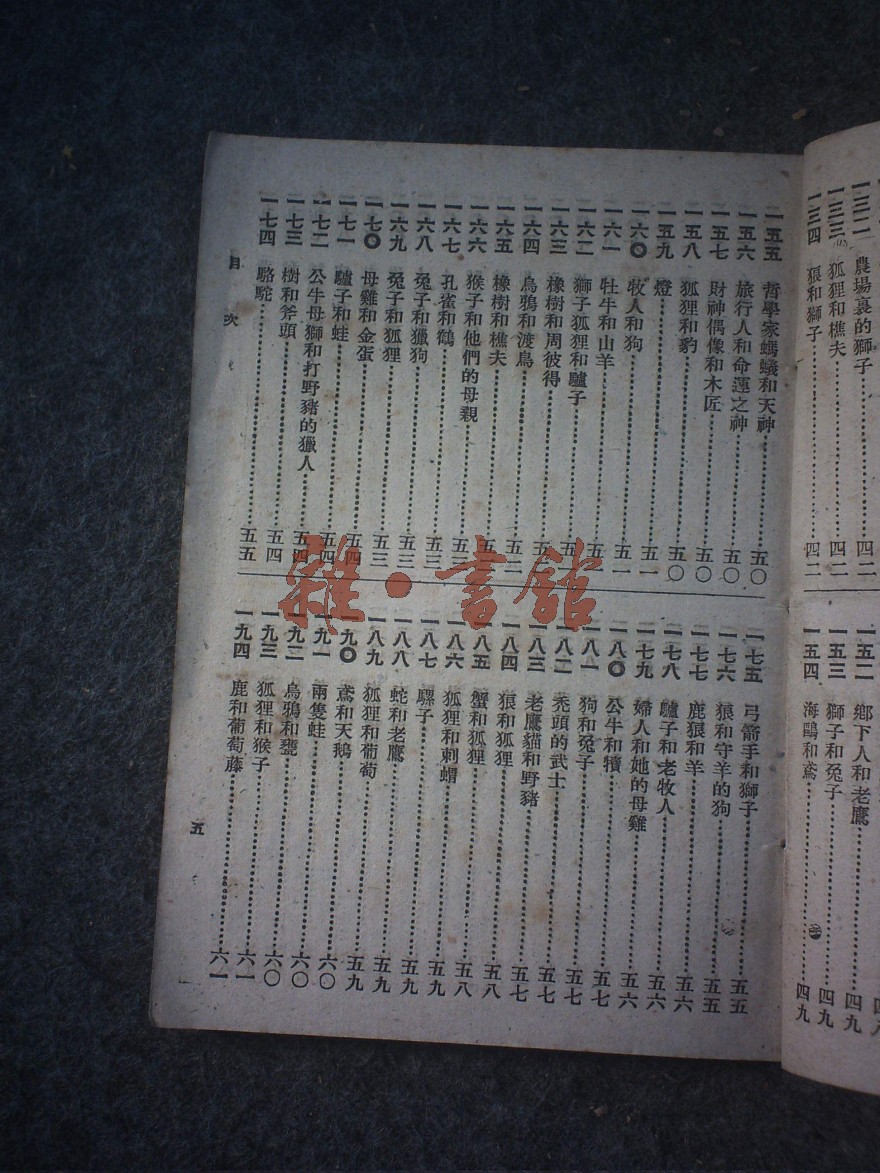 一三二 農場裏的獅子 四二
一三三 狐狸和樵夫 四二
一三四 狼和獅子 四二
一五二 鄉下人和老鷹
一五三 獅子和兔子 四九
一五四 海鷗和鳶 四九
一五五 哲學家螞蟻和天神 五〇
一五六 旅行人和命運之神 五〇
一五七 財神偶像和木匠 五〇
一五八 狐狸和豹 五〇
一五九 燈 五一
一六〇 牧人和狗 五一
一六一 牡牛和山羊
一六二 獅子狐狸和驢子
一六三 橡樹和周彼得
一六四 烏鴉和渡鳥
一六五 橡樹和樵夫
一六六 猴子和他們的母親
一六七 孔雀和鶴 五三
一六八 兔子和獵狗 五三
一六九 兔子和狐狸 五三
一七〇 母雞和金蛋 五四
一七一 驢子和蛙 五四
一七二 公牛母獅和打野豬的獵人 五四
一七三 樹和斧頭 五四
一七四 駱駝 五五
一七五 弓箭手和獅子 五五
一七六 狼和守羊的狗 五五
一七七 鹿狼和羊 五六
一七八 驢子和老牧人 五六
一七九 婦人和她的母雞 五六
一八〇 公牛和犢 五七
一八一 狗和兔子 五七
一八二 禿頭的武士 五七
一八三 老鷹貓和野豬 五七
一八四 狼和狐狸 五八
一八五 蟹和狐狸 五八
一八六 狐狸和刺蝟 五九
一八七 騾子 五九
一八八 蛇和老鷹 五九
一八九 狐狸和葡萄 五九
一九〇 鳶和天鵝 五九
一九一 兩隻蛙 六〇
一九二 烏鴉和甕 六〇
一九三 狐狸和猴子 六〇
一九四 鹿和葡萄藤 六一
目次
五
雜·書館